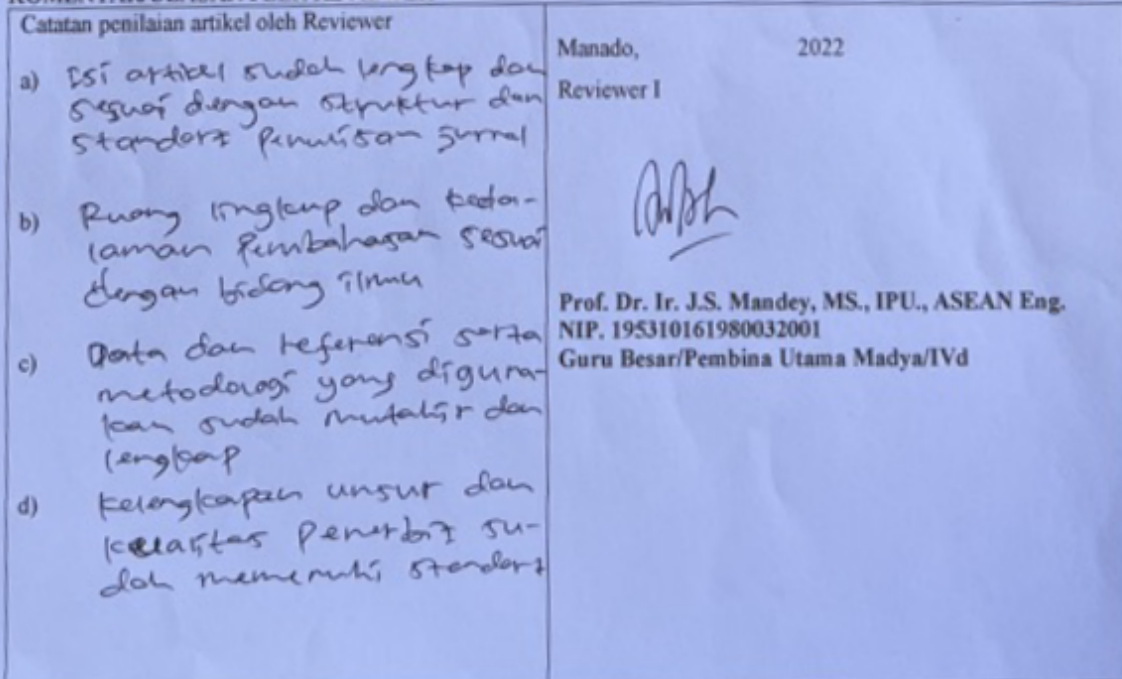 Catatan penilaian artikel oleh Reviewer
a) Isi artikel sudah lengkap dan
sesuai dengan struktur dan
standart penulisan jurnal
b) Ruang lingkup dan keda-
laman pembahasan sesuai
dengan bidang ilmu
c) Data dan referensi serta
metodologi yang diguna-
kan sudah mutahir dan
lengkap
d) Kelengkapan unsur dan
kualitas penerbit su-
dah memenuhi standart
Manado, 2022
Reviewer I
Prof. Dr. Ir. J.S. Mandey, MS., IPU., ASEAN Eng.
NIP. 195310161980032001
Guru Besar/Pembina Utama Madya/IVd